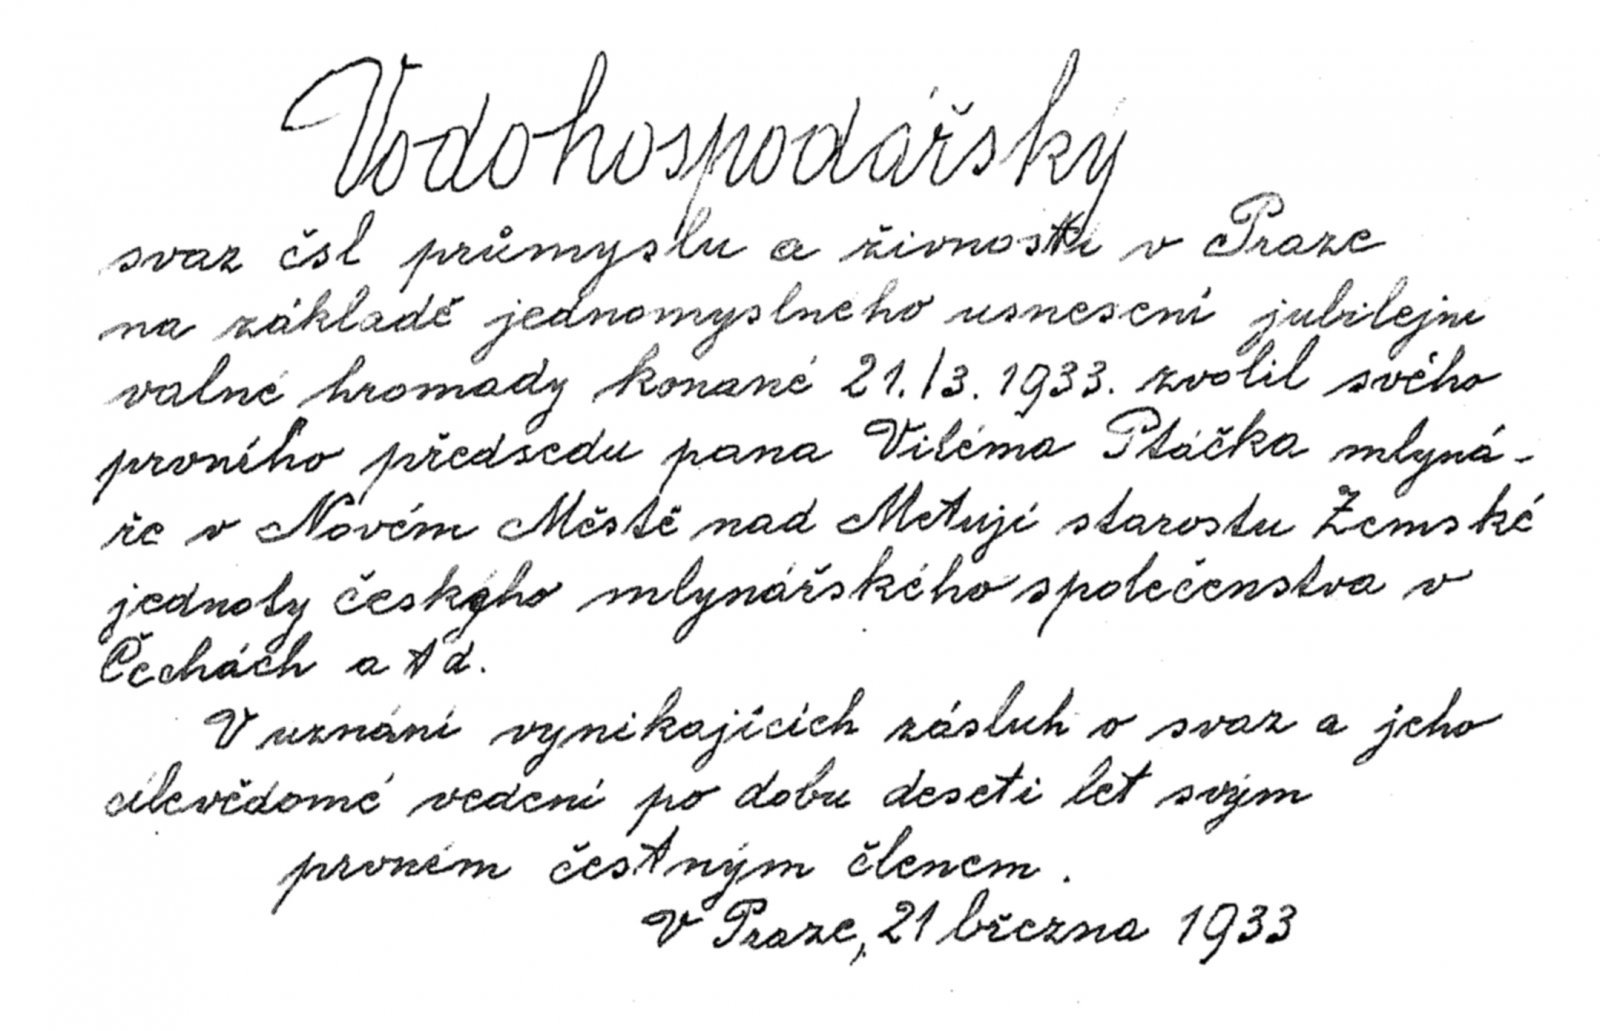 Vodohospodářský
svaz čsl průmyslu a živnosti v Praze
na základě jednomyslného usnesení jubilejní
valné hromady konané 21./3. 1933. zvolil svého
prvního předsedu pana Viléma Ptáčka mlyná-
ře v Novém Městě nad Metují starostu Zemské
jednoty českého mlynářského společenstva v
Čechách a td.
V uznání vynikajících zásluh o svaz a jeho
cílevědomé vedení po dobu deseti let svým
prvném čestným členem.
V Praze, 21 března 1933